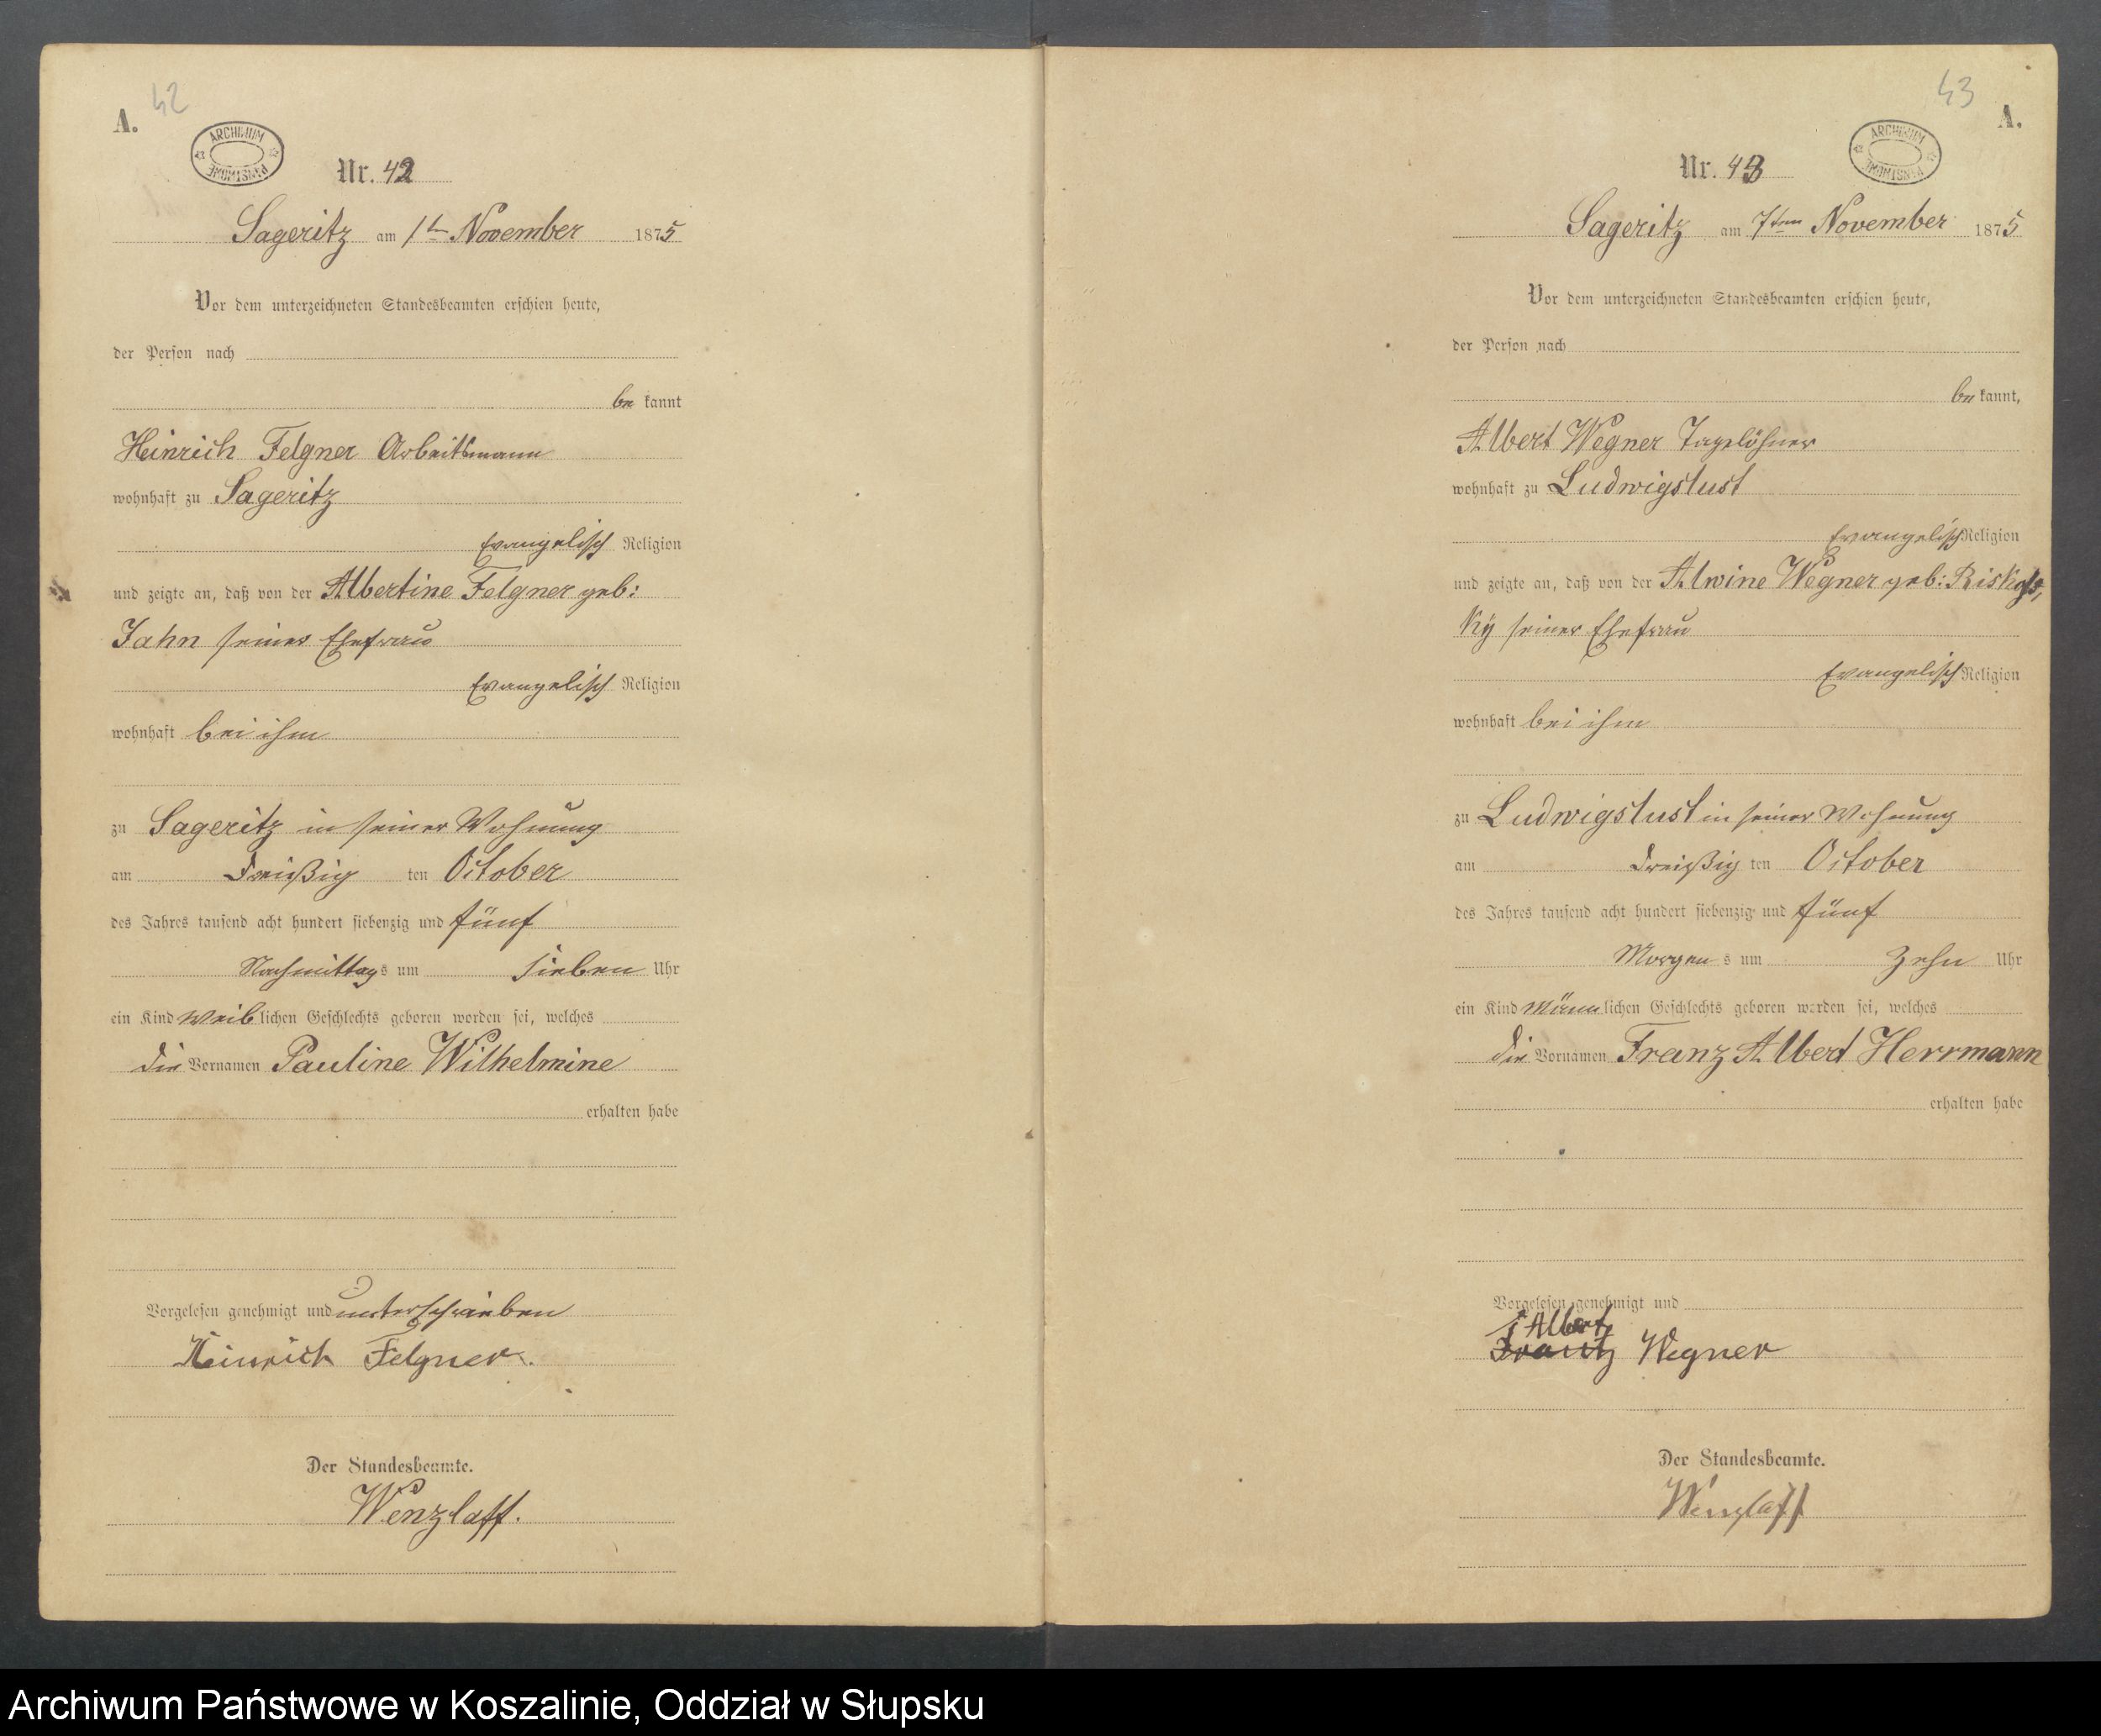 42
A.
ARCHIWUM PAŃSTWOWE
Nr. 42
Sageritz am 1ten November 1875
Vor dem unterzeichneten Standesbeamten erschien heute,
der Person nach
be kannt
Heinrich Felgner Arbeitsmann
wohnhaft zu Sageritz
Evangelisch Religion
und zeigte an, daß von der Albertine Felgner geb:
Jahn seiner Ehefrau
Evangelisch Religion
wohnhaft bei ihm
zu Sageritz in seiner Wohnung
am Dreißig ten October
des Jahres tausend acht hundert siebenzig und fünf
Nachmittags um sieben Uhr
ein Kind weiblichen Geschlechts geboren worden sei, welches
die Vornamen Pauline Wilhelmine
erhalten habe
Vorgelesen genehmigt und unterschrieben
Heinrich Felgner.
Der Standesbeamte.
Wenzlaff.
43
A.
ARCHIWUM PAŃSTWOWE
Nr. 43
Sageritz am 7ten November 1875
Vor dem unterzeichneten Standesbeamten erschien heute,
der Person nach
be kannt,
Albert Wegner Tagelöhner
wohnhaft zu Ludwigslust
Evangelisch Religion
und zeigte an, daß von der Alwine Wegner geb:
ky seiner Ehefrau
Evangelisch Religion
wohnhaft bei ihm
zu Ludwigslust in seiner Wohnung
am Dreißig ten October
des Jahres tausend acht hundert siebenzig und fünf
Morgens um Zehn Uhr
ein Kind männlichen Geschlechts geboren worden sei, welches
die Vornamen Franz Albert Herrmann
erhalten habe
Vorgelesen genehmigt und
Albert
Frantz Wegner
Der Standesbeamte.
Wenzlaff
Archiwum Państwowe w Koszalinie, Oddział w Słupsku